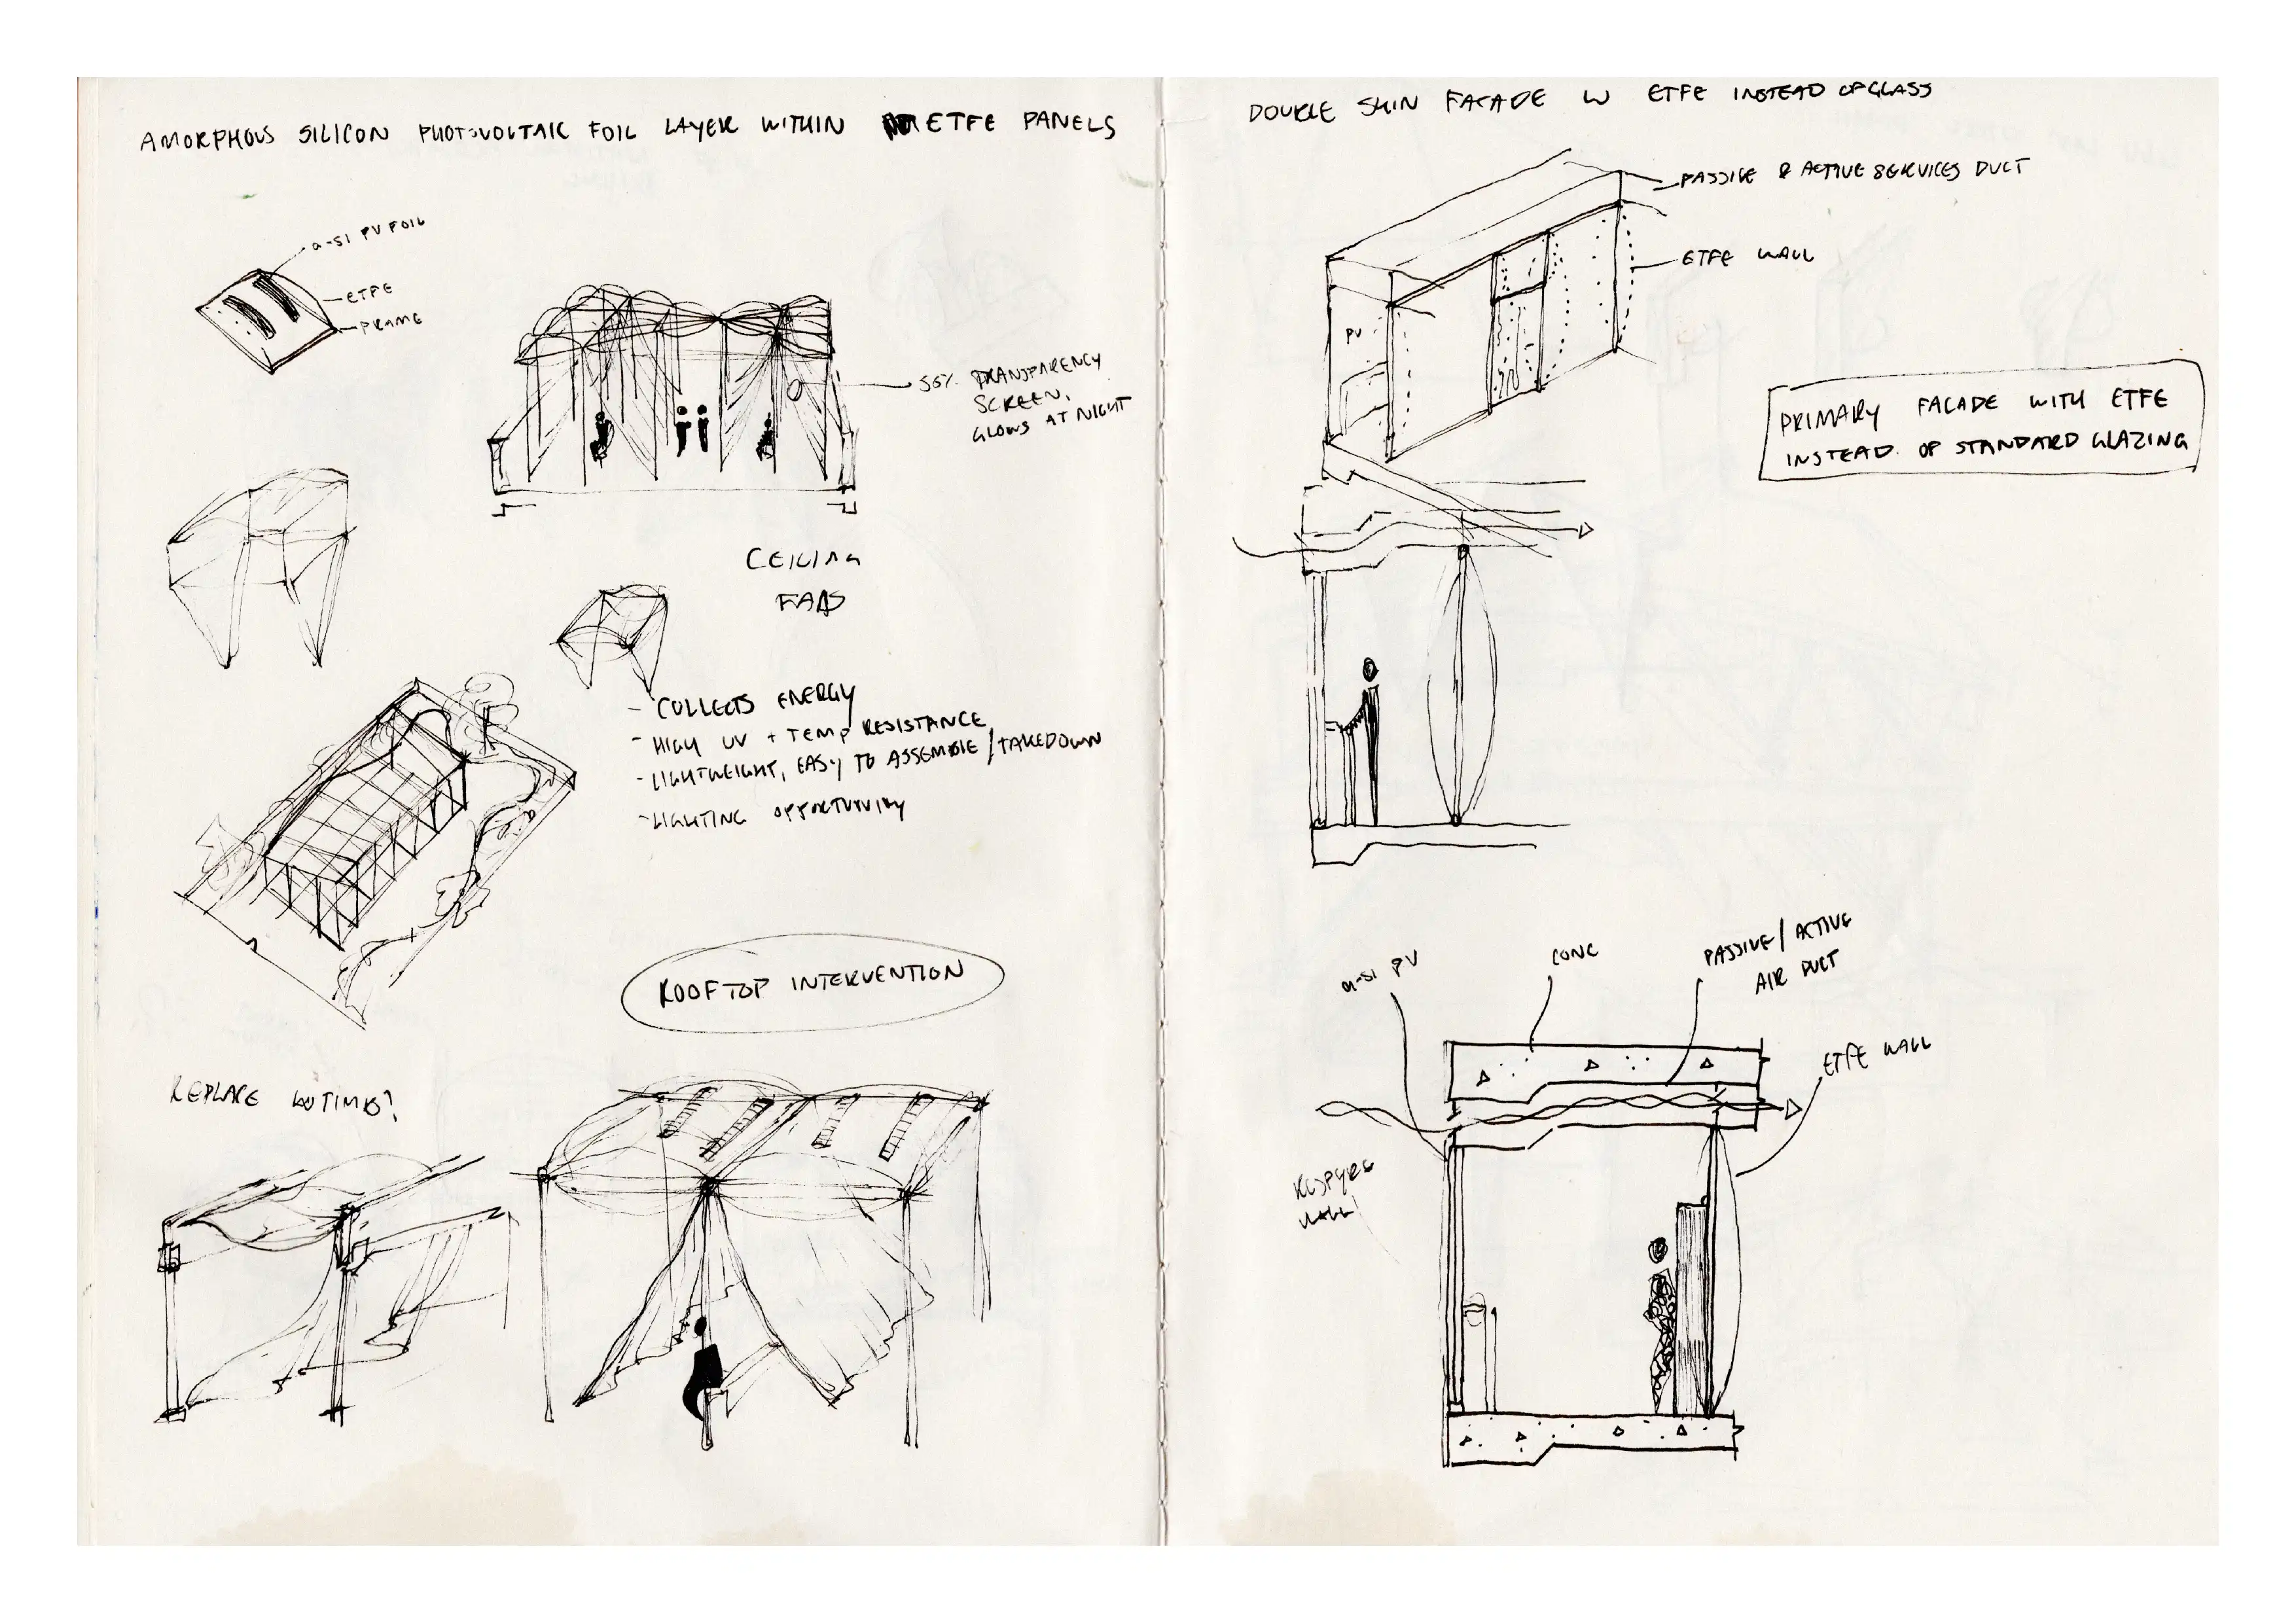 AMORPHOUS SILICON PHOTOVOLTAIC FOIL LAYER WITHIN ETFE PANELS
a-si PV FOIL
ETFE
FRAME
TRANSPARENCY
SCREEN,
GLOWS AT NIGHT
CEILING
FANS
- COLLECTS ENERGY
- HIGH UV + TEMP RESISTANCE
- LIGHTWEIGHT, EASY TO ASSEMBLE / TAKEDOWN
- LIGHTING OPPORTUNITY
ROOFTOP INTERVENTION
REPLACE
DOUBLE SKIN FACADE W ETFE INSTEAD OF GLASS
PASSIVE & ACTIVE SERVICES DUCT
ETFE WALL
PV
PRIMARY FACADE WITH ETFE
INSTEAD OF STANDARD GLAZING
a-si PV
CONC
PASSIVE / ACTIVE
AIR DUCT
ETFE WALL
WALL